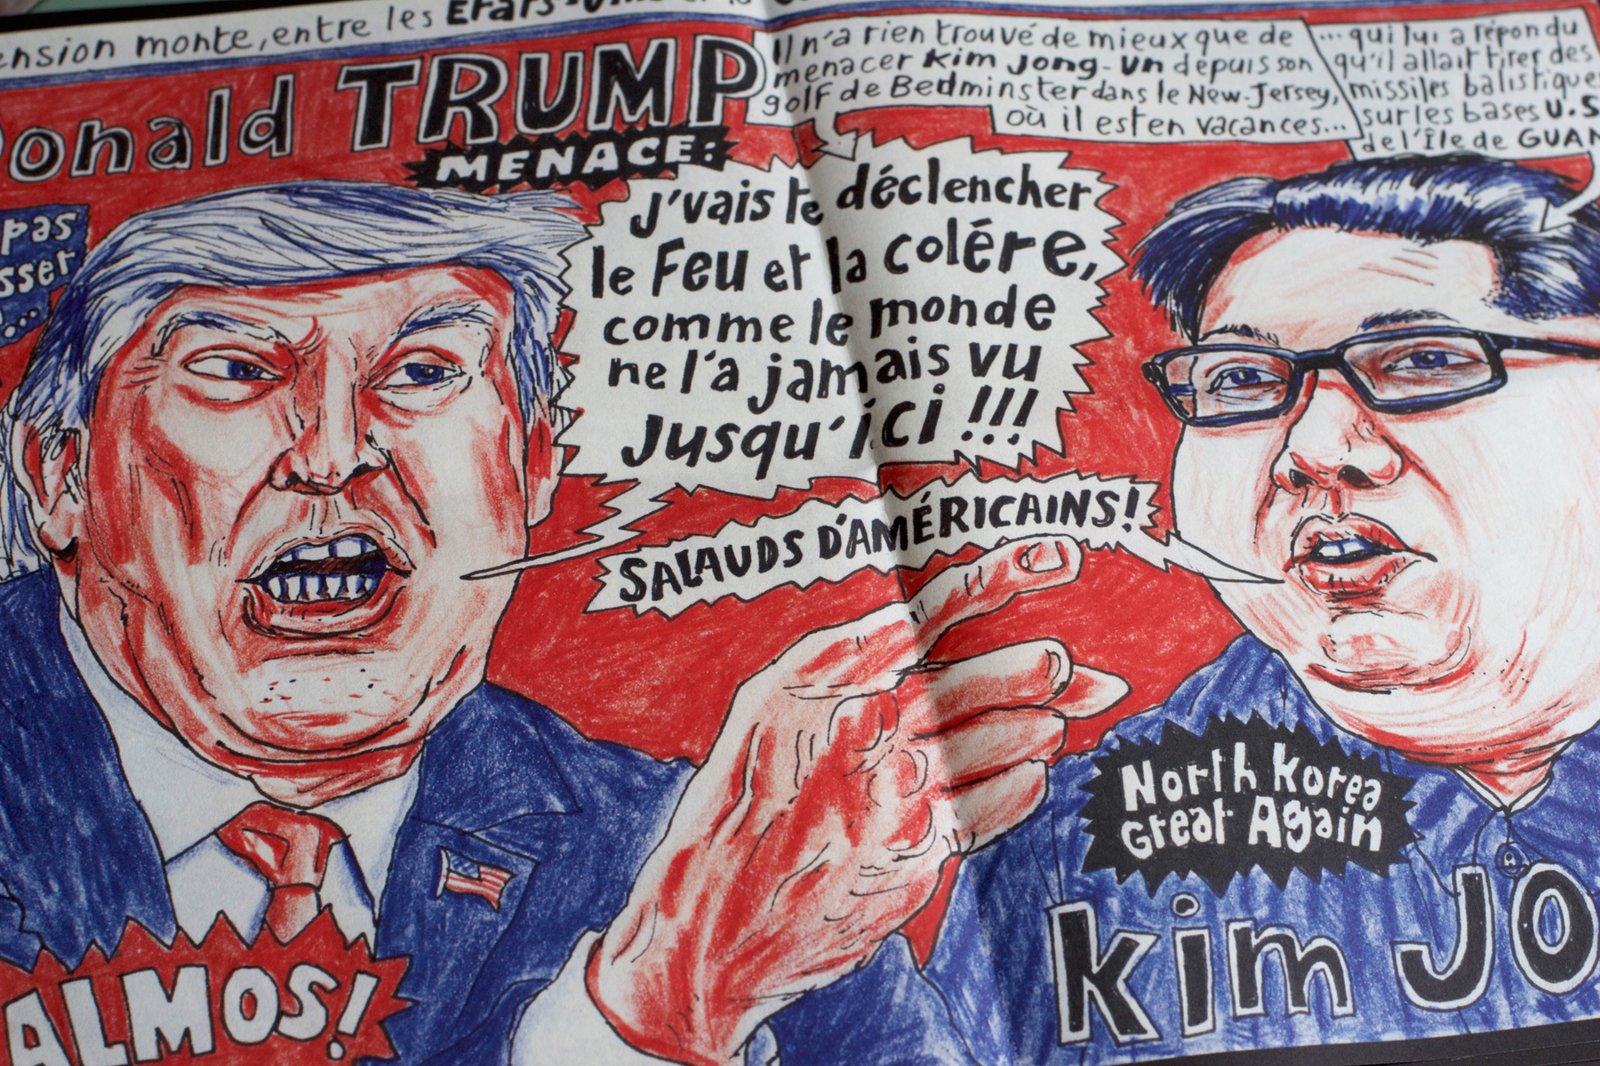 ension monte, entre les ETATS-UNIS et la
Donald TRUMP
MENACE:
Il n'a rien trouvé de mieux que de
menacer Kim Jong-Un depuis son
golf de Bedminster dans le New-Jersey,
où il est en vacances...
... qui lui a répondu
qu'il allait tirer des
missiles balistiques
sur les bases U.S
de l'île de GUAM
pas
sser
...
J'vais te déclencher
le Feu et la colére,
comme le monde
ne l'a jamais vu
Jusqu'ici !!!
SALAUDS D'AMÉRICAINS!
North Korea
Great Again
Kim JO
ALMOS!